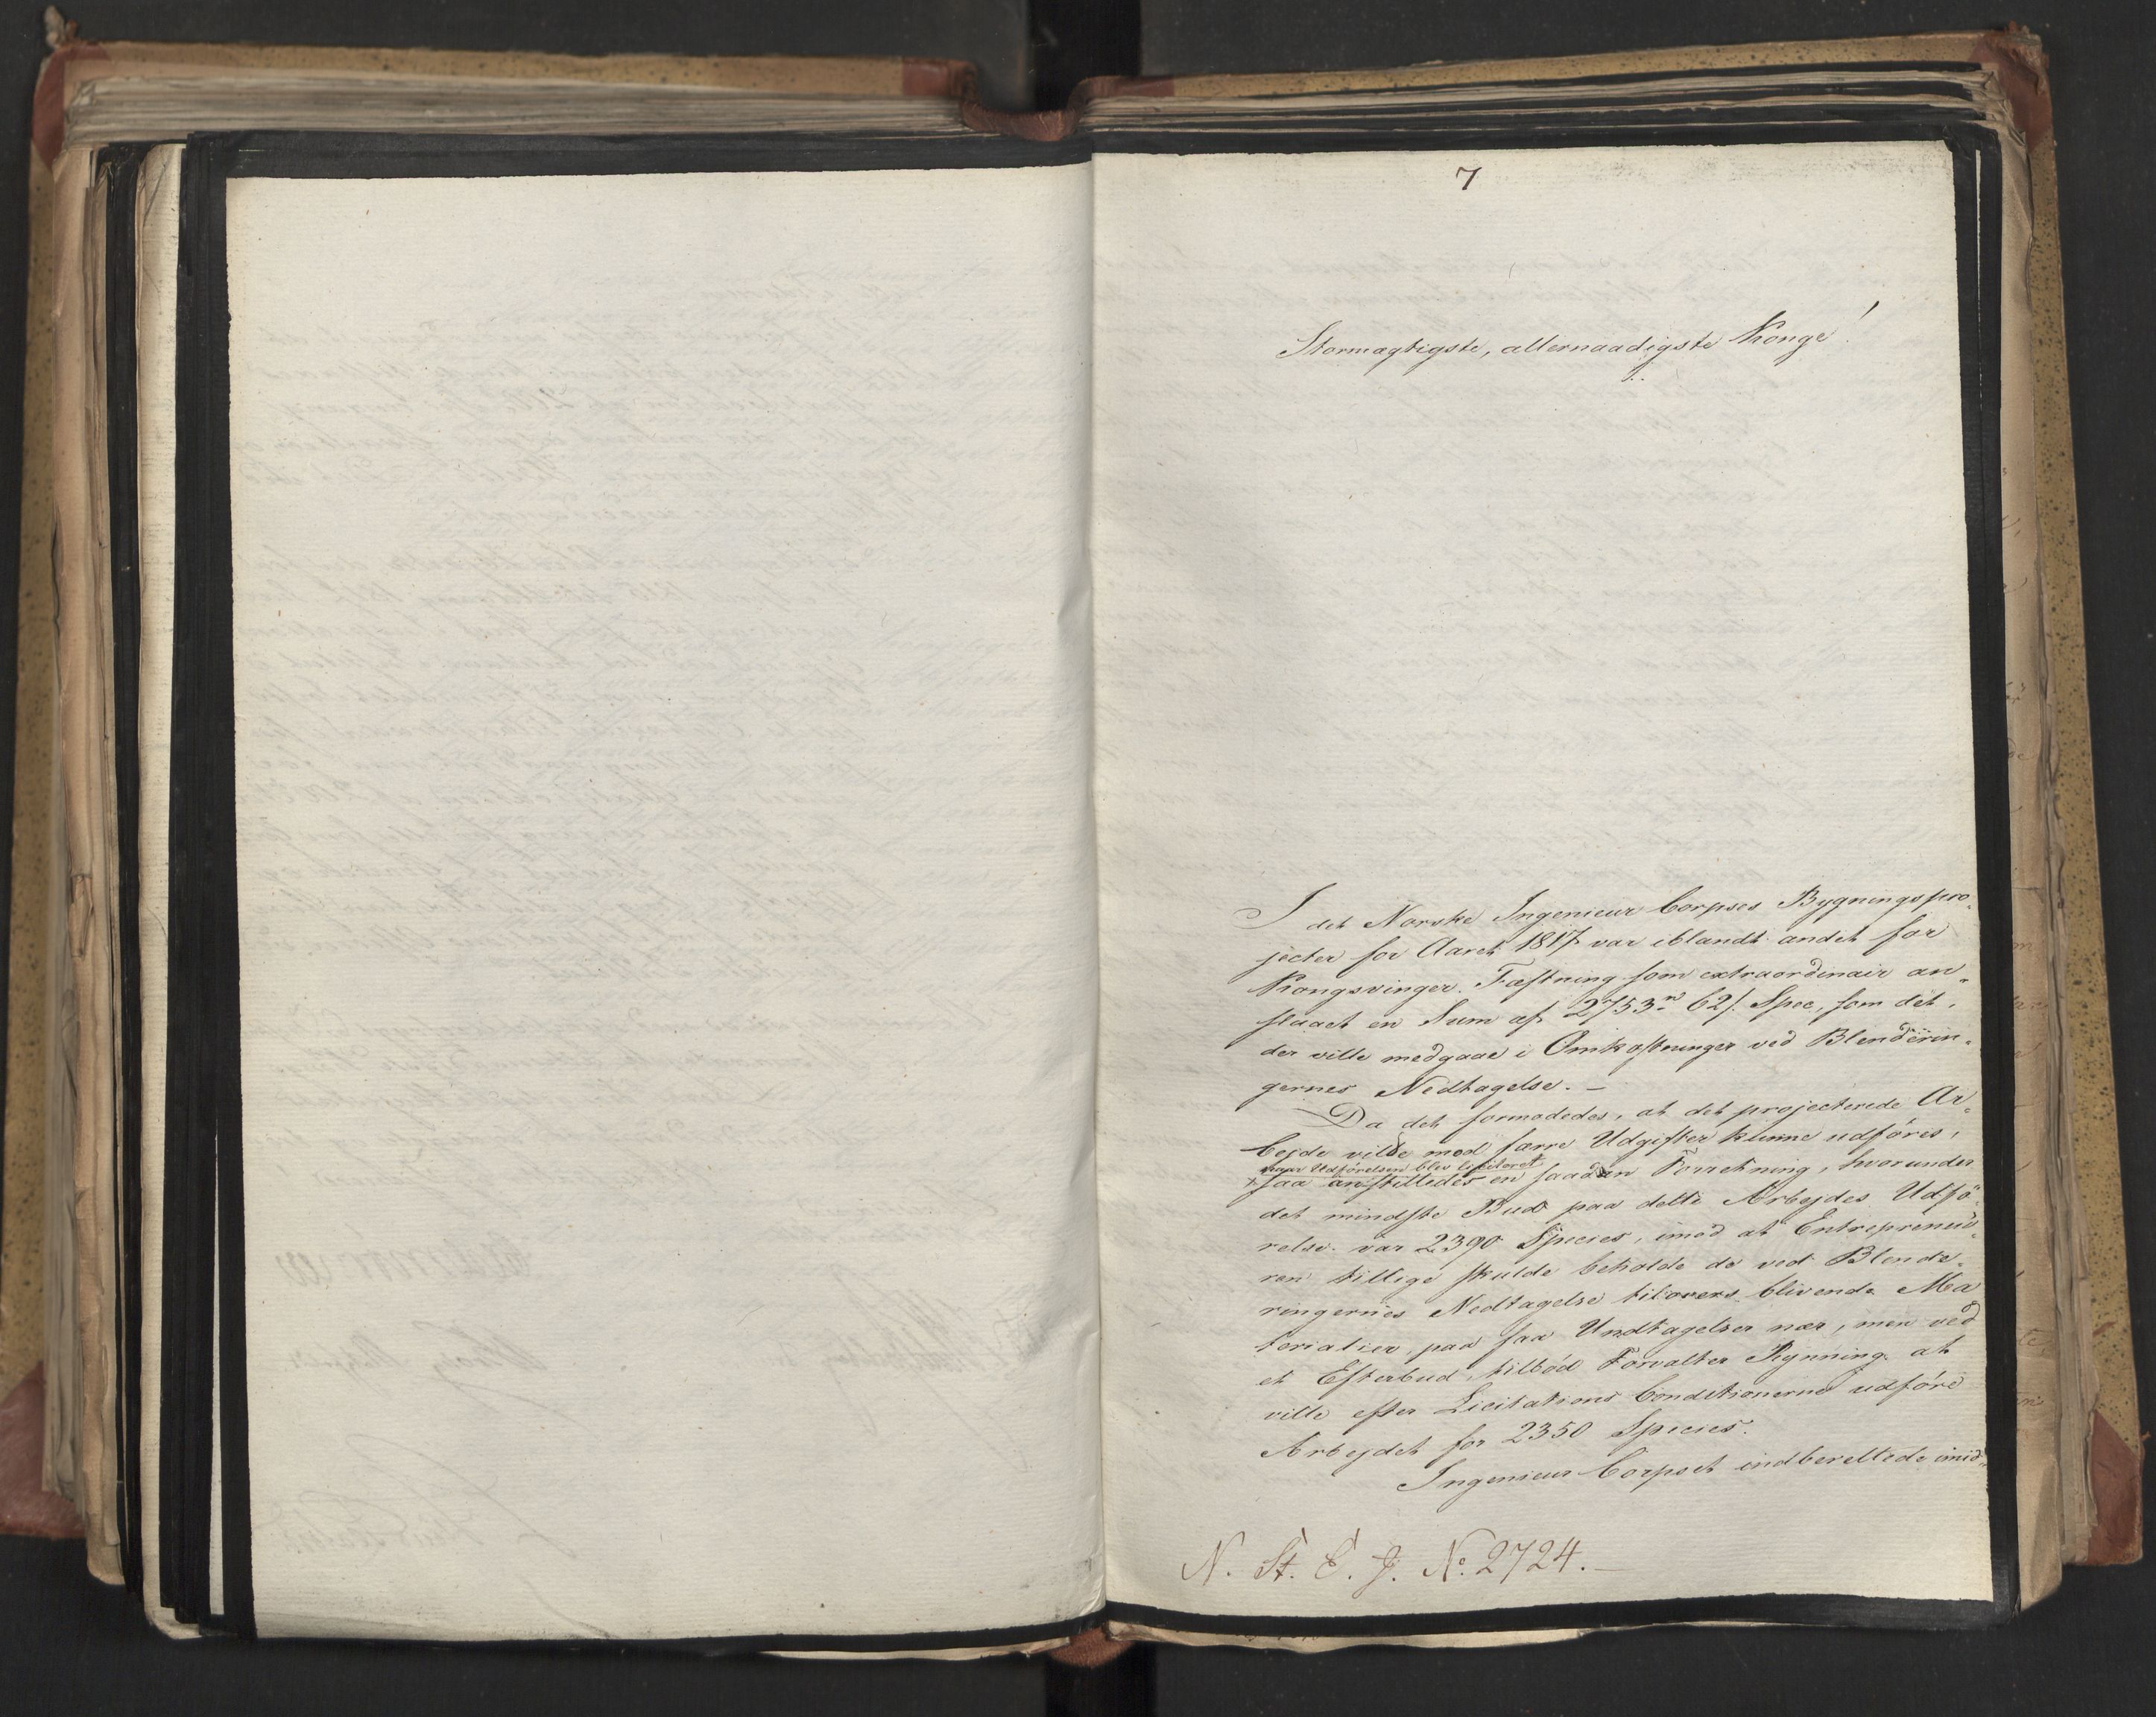 7
Stormægtigste, allernaadigste Konge!
I det Norske Ingenieur Corpses Bygningspro-
jecter for Aaret 1817 var iblandt andet for
Kongsvinger Fæstning som extraordinair an-
slaaet en Sum af 2753 62/ Spec, som det,
der ville medgaae i Omkostninger ved Blenderin-
gernes Nedtagelse. —
Da det formodedes, at det projecterede Ar-
bejde vilde mod færre Udgifter kunne udføres,
naar Udførelsen blev liciteret
saa anstilledes en saadan Forretning, hvorunder
det mindste Bud paa dette Arbejdes Udfø-
relse var 2390 Species, imod at Entrepreneu-
ren tillige skulde beholde de ved Blende-
ringernes Nedtagelse tilovers blivende Ma
terialier, paa faa Undtagelser nær, men ved
et Efterbud, tilbød Forvalter Rynning at
ville efter Licitations Conditionerne udføre
Arbejdet for 2350 Species.
Ingenieur Corpset indberettede imid-
N. St. E. J. No. 2724. —